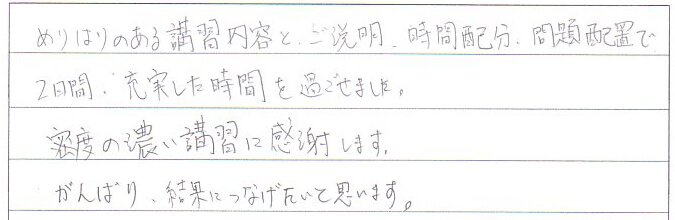 めりはりのある講習内容と、ご説明、時間配分、問題配置で
2日間、充実した時間を過ごせました。
密度の濃い講習に感謝します。
がんばり、結果につなげたいと思います。